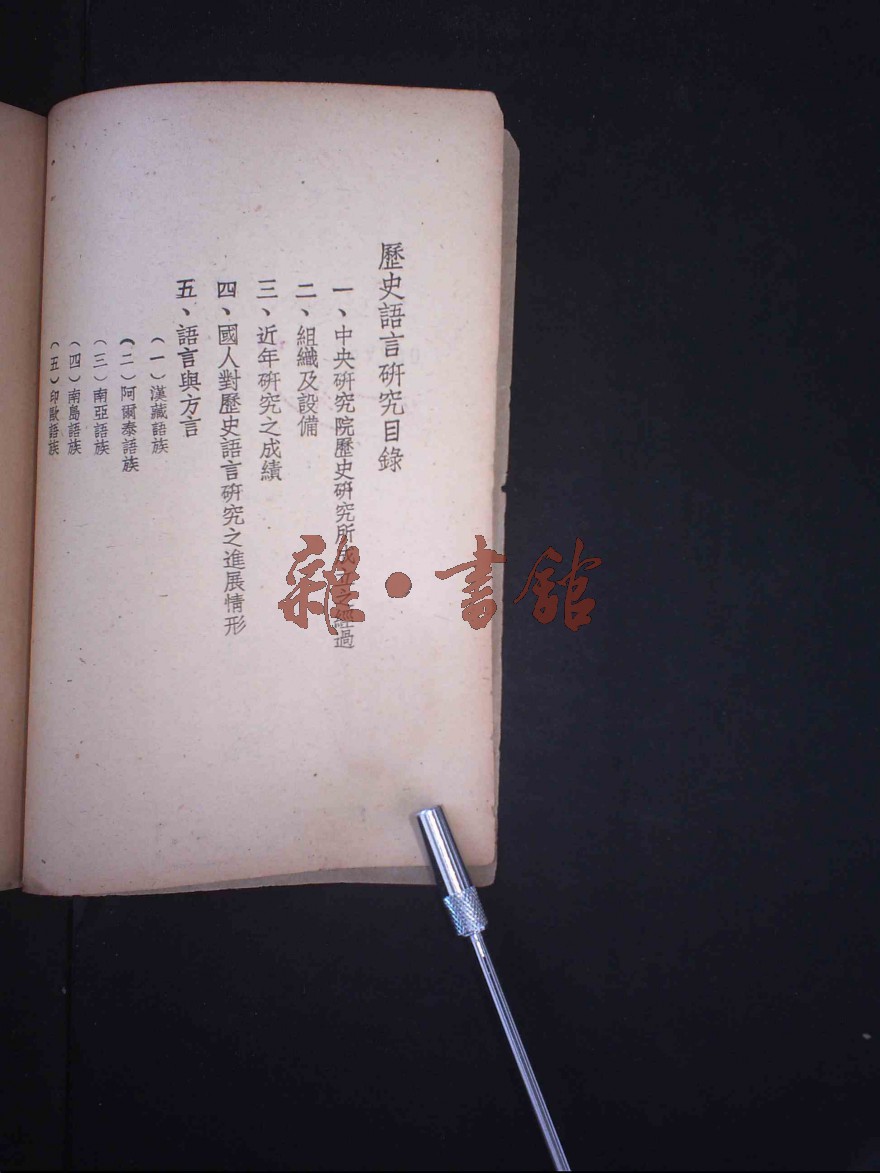 歷史語言研究目錄
一、中央研究院歷史研究所成立之經過
二、組織及設備
三、近年研究之成績
四、國人對歷史語言研究之進展情形
五、語言與方言
（一）漢藏語族
（二）阿爾泰語族
（三）南亞語族
（四）南島語族
（五）印歐語族
雜·書館